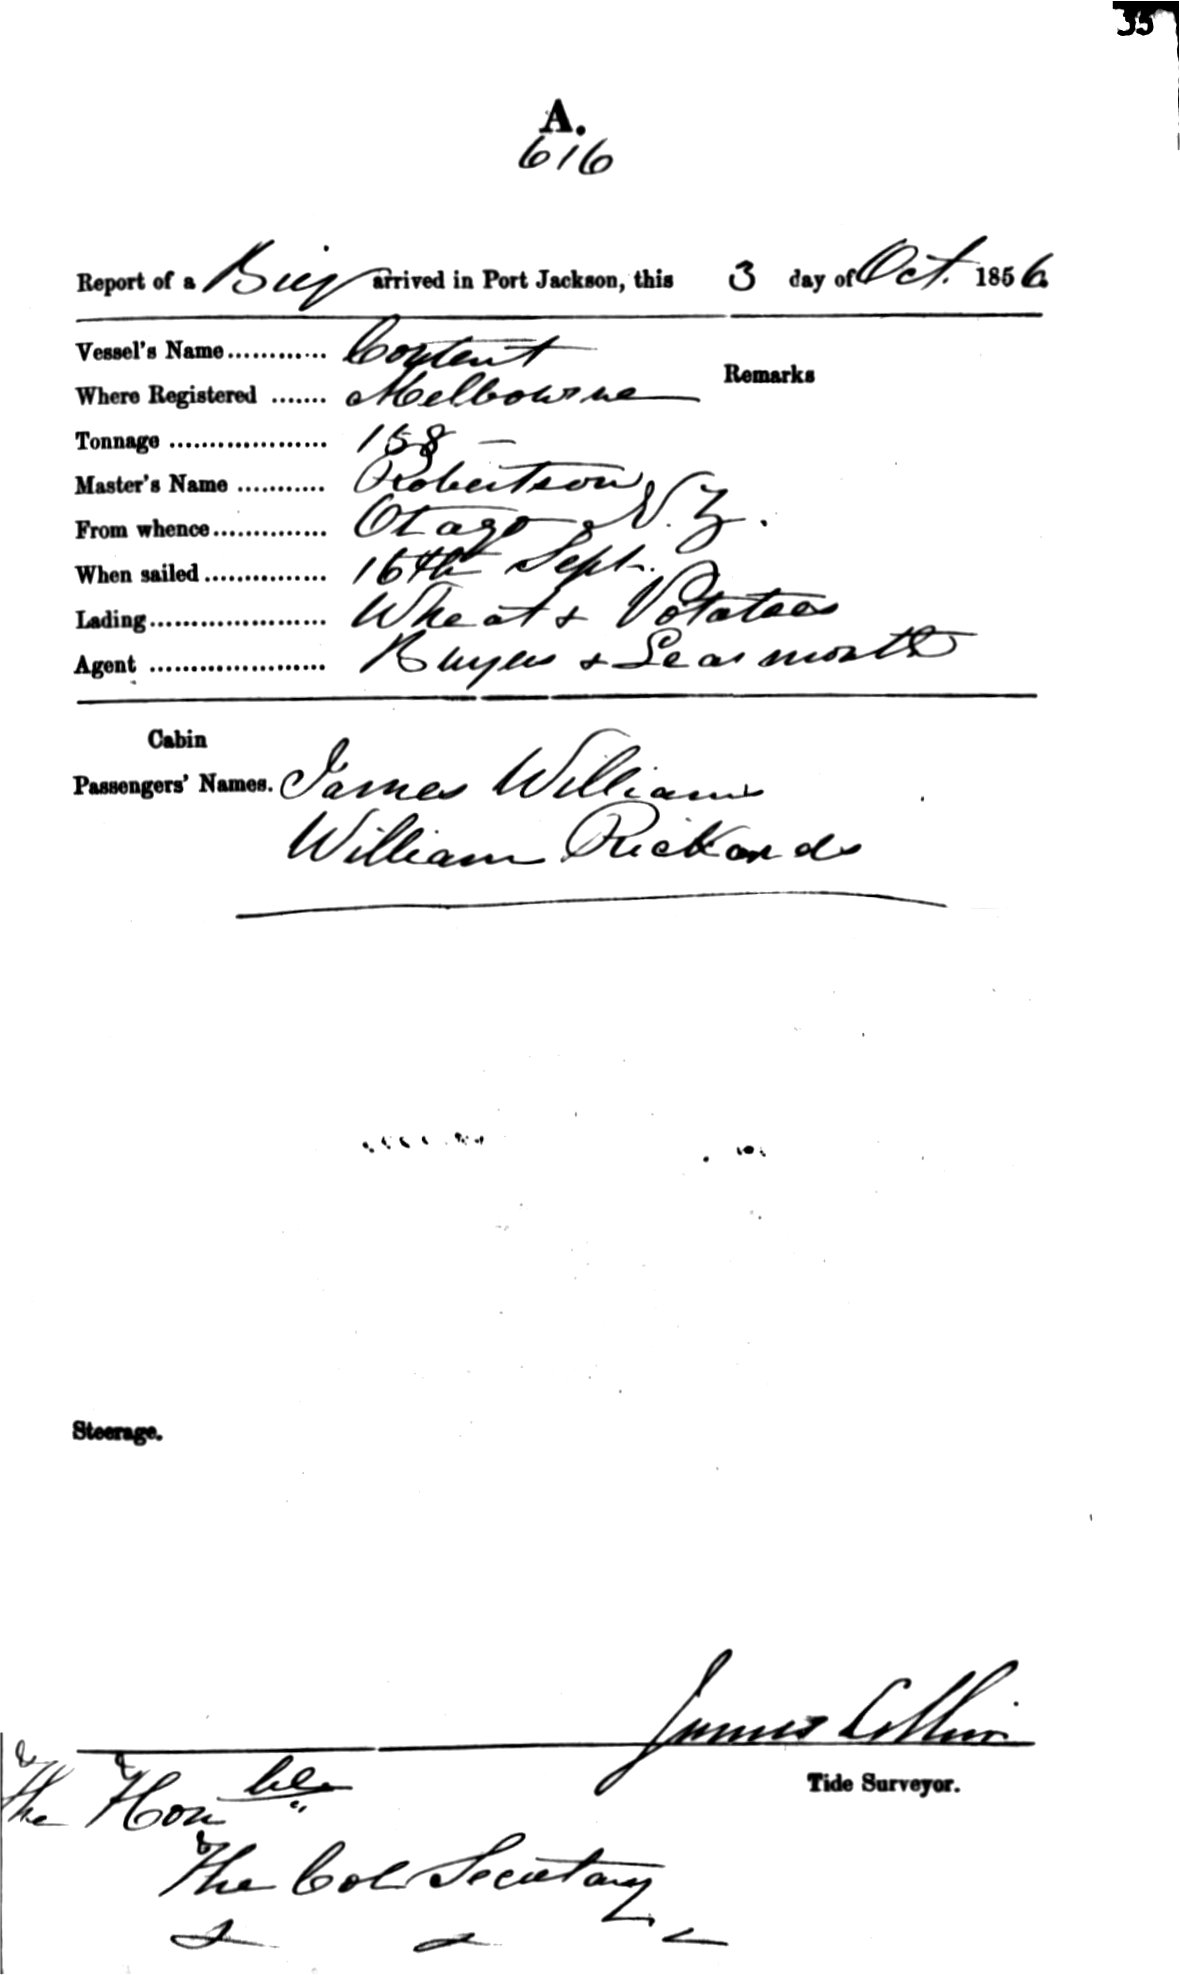 35
A.
616
Report of a Brig arrived in Port Jackson, this 3 day of Oct. 1856
Vessel's Name............ Content
Where Registered ....... Melbourne
Remarks
Tonnage ................... 158 —
Master's Name ........... Robertson
From whence.............. Otago N.Z.
When sailed ............... 15th Sept.
Lading...................... Wheat & Potatoes
Agent ...................... Buyers & Learmonth
Cabin
Passengers' Names. James Williams
William Rickards
Steerage.
James Collin
Tide Surveyor.
The Honble
The Col Secretary
& &c